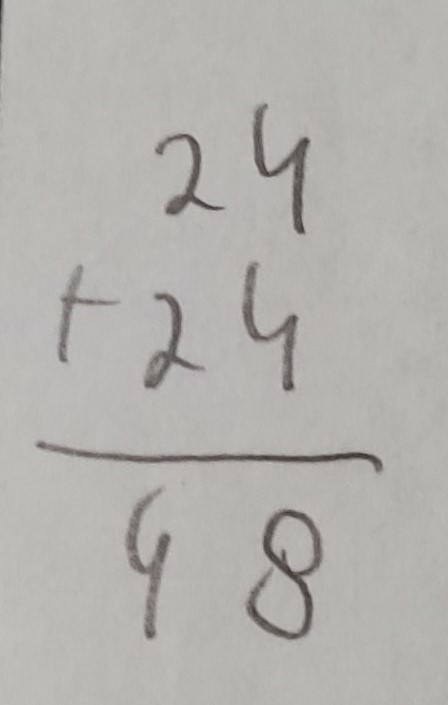 24
+ 24
48